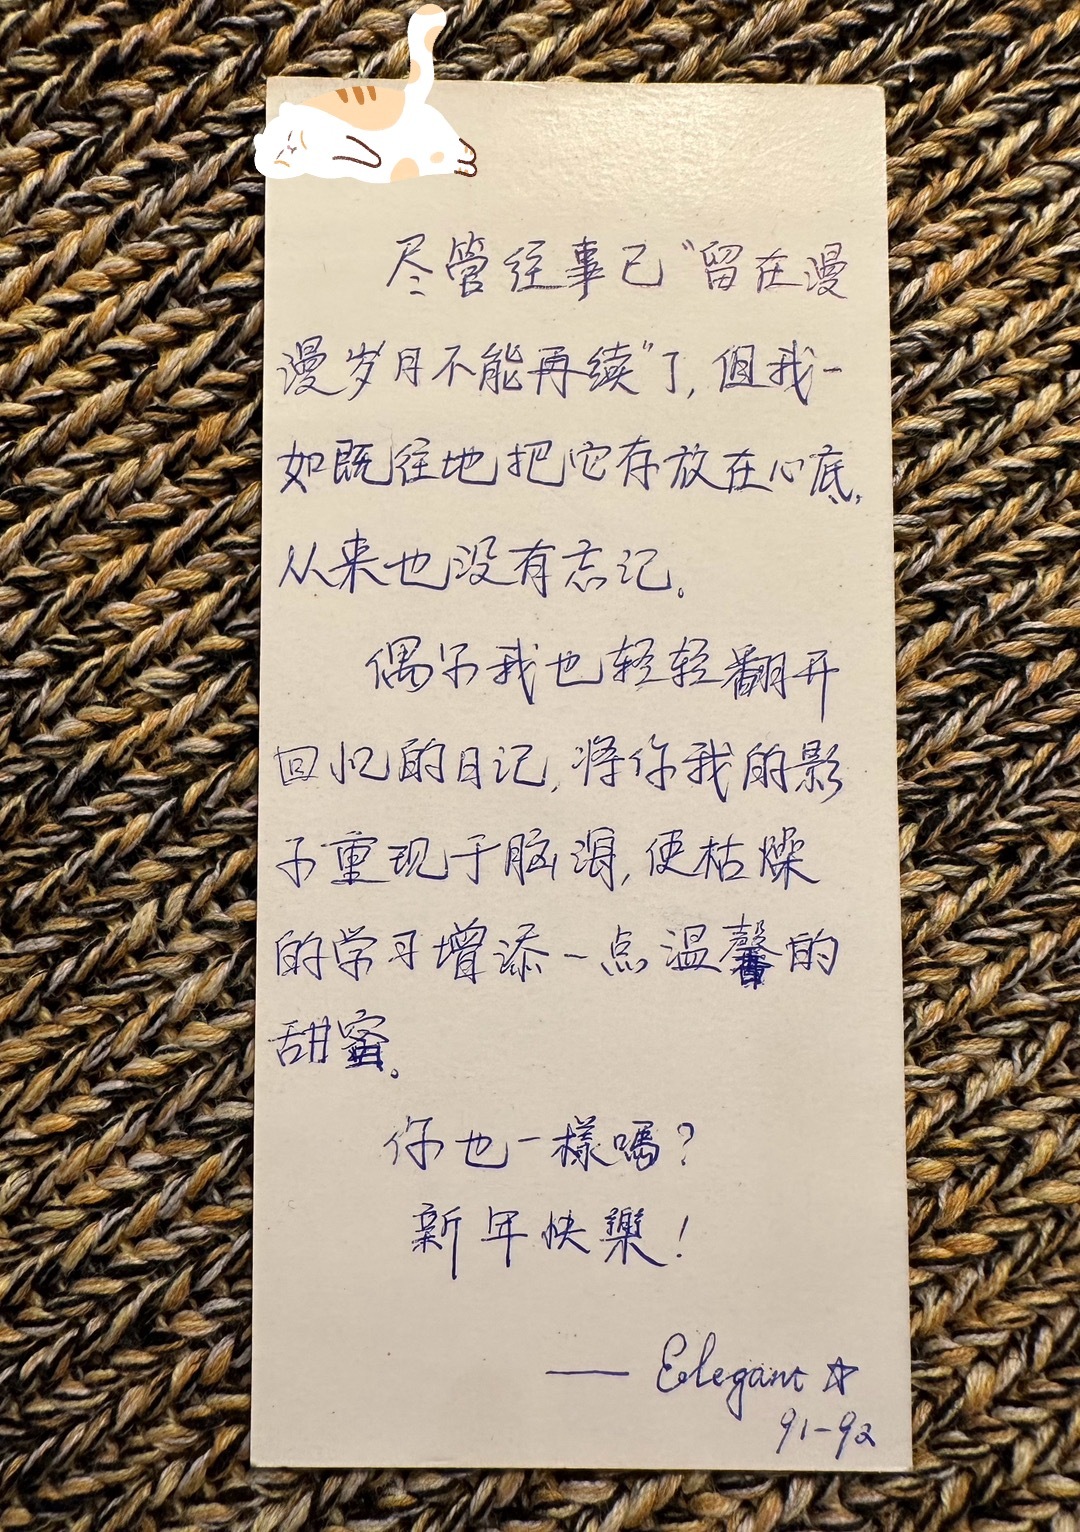 尽管往事已“留在漫
漫岁月不能再续”了,但我一
如既往地把它存放在心底,
从来也没有忘记。
偶尔我也轻轻翻开
回忆的日记,将你我的影
子重现于脑海,使枯燥
的学习增添一点温馨的
甜蜜。
你也一樣嗎?
新年快樂!
—— Elegant ☆
91-92